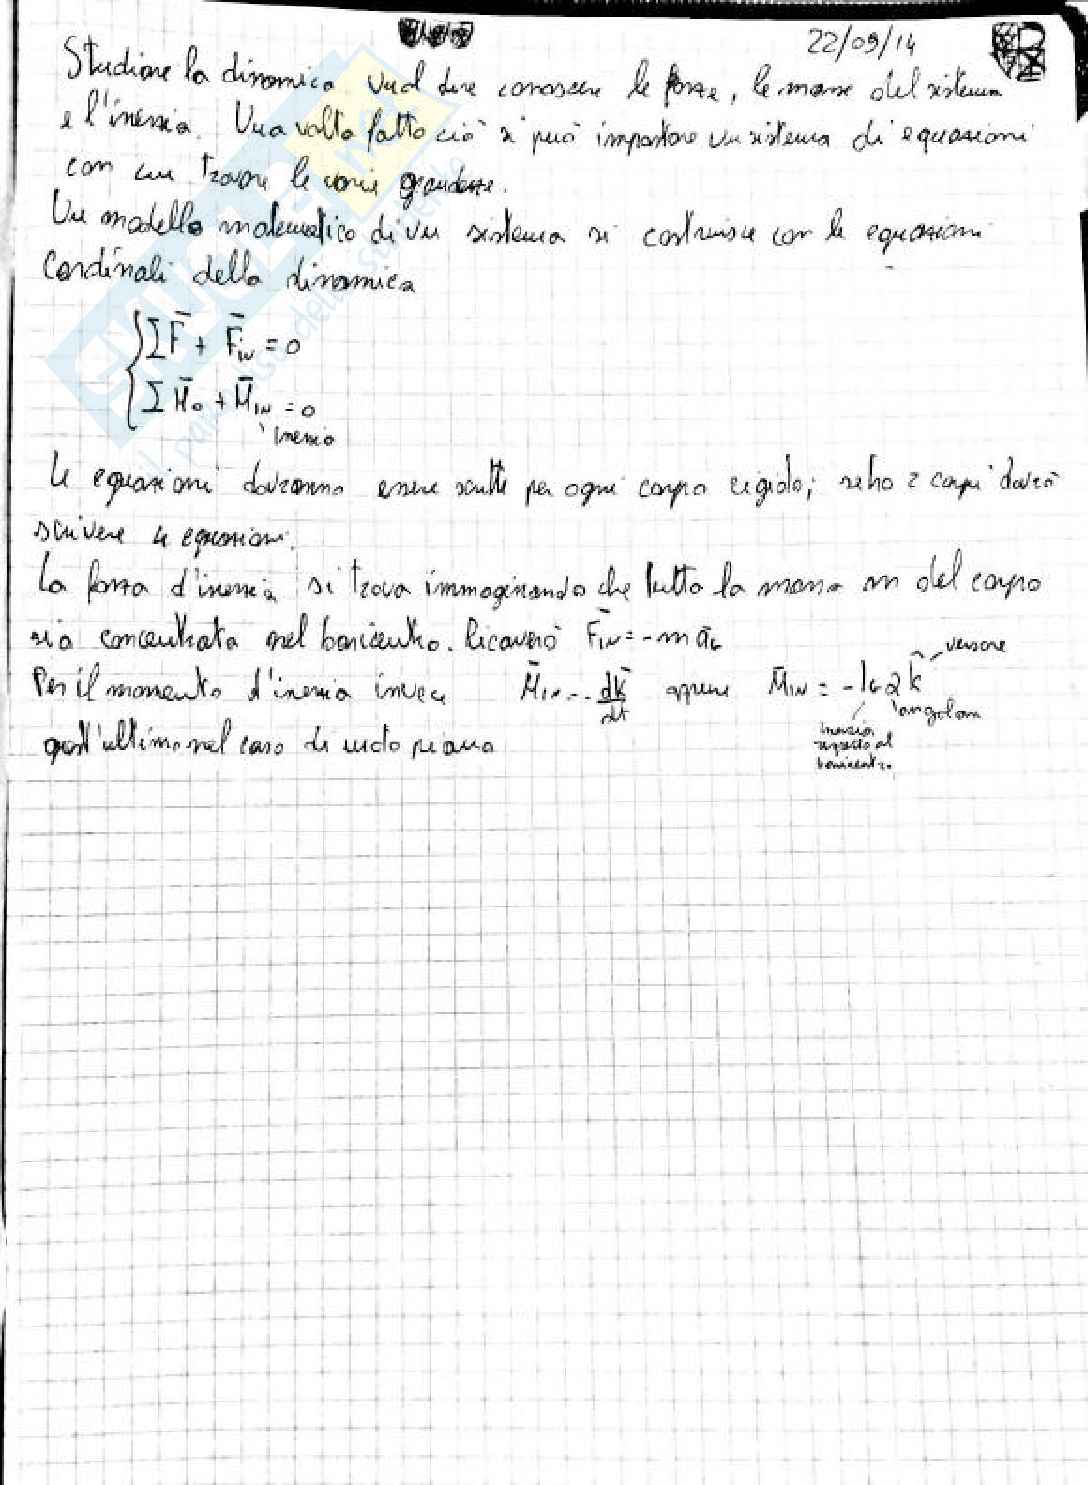 22/09/14
Studiare la dinamica vuol dire conoscere le forze, le masse del sistema
e l'inerzia. Una volta fatto ciò si può impostare un sistema di equazioni
con cui trovare le varie grandezze.
Un modello matematico di un sistema si costruisce con le equazioni
Cardinali della dinamica
ΣF̄ + F̄in = 0
ΣM̄o + M̄IN = 0
inerzia
Le equazioni dovranno essere scritte per ogni corpo rigido; se ho 2 corpi dovrò
scrivere 4 equazioni.
La forza d'inerzia si trova immaginando che tutta la massa m del corpo
sia concentrata nel baricentro. Ricaverò F̄IN = -m āG
versore
Per il momento d'inerzia invece M̄IN = - dK̄/dt oppure M̄IN = -IG α k̂
angolare
inerzia
rispetto al
baricentro
quest'ultimo nel caso di moto piano